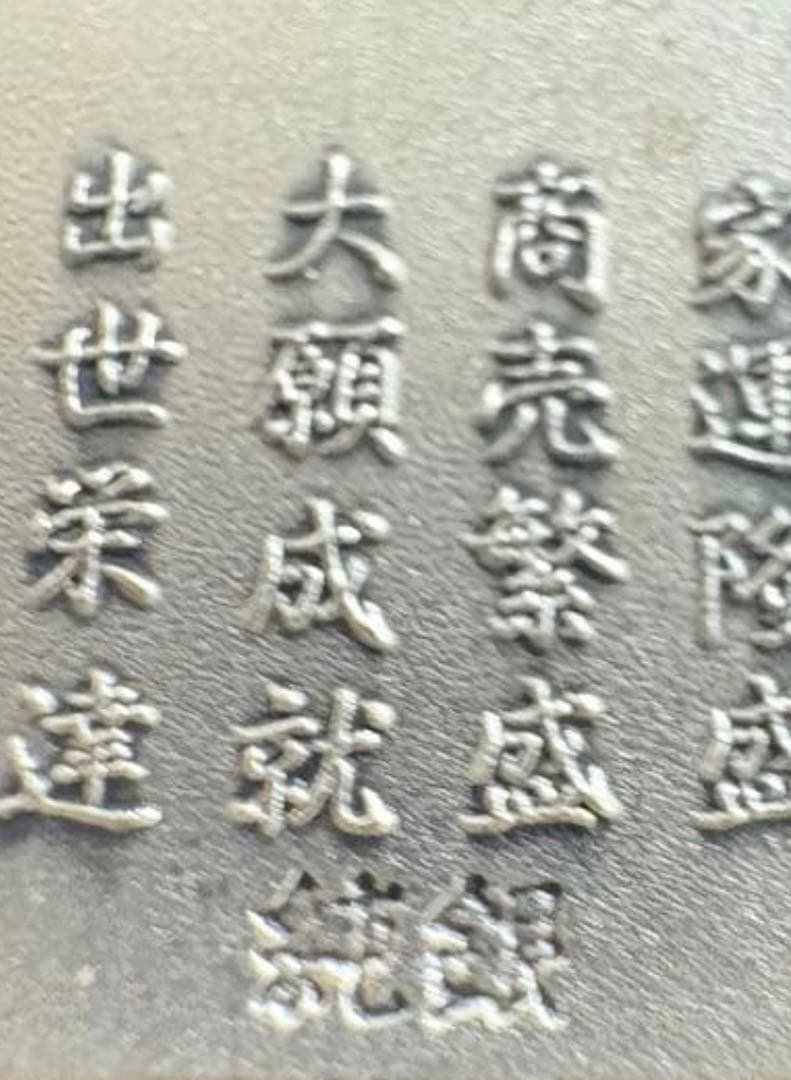 家運隆盛
商売繁盛
大願成就
出世栄達
純銀